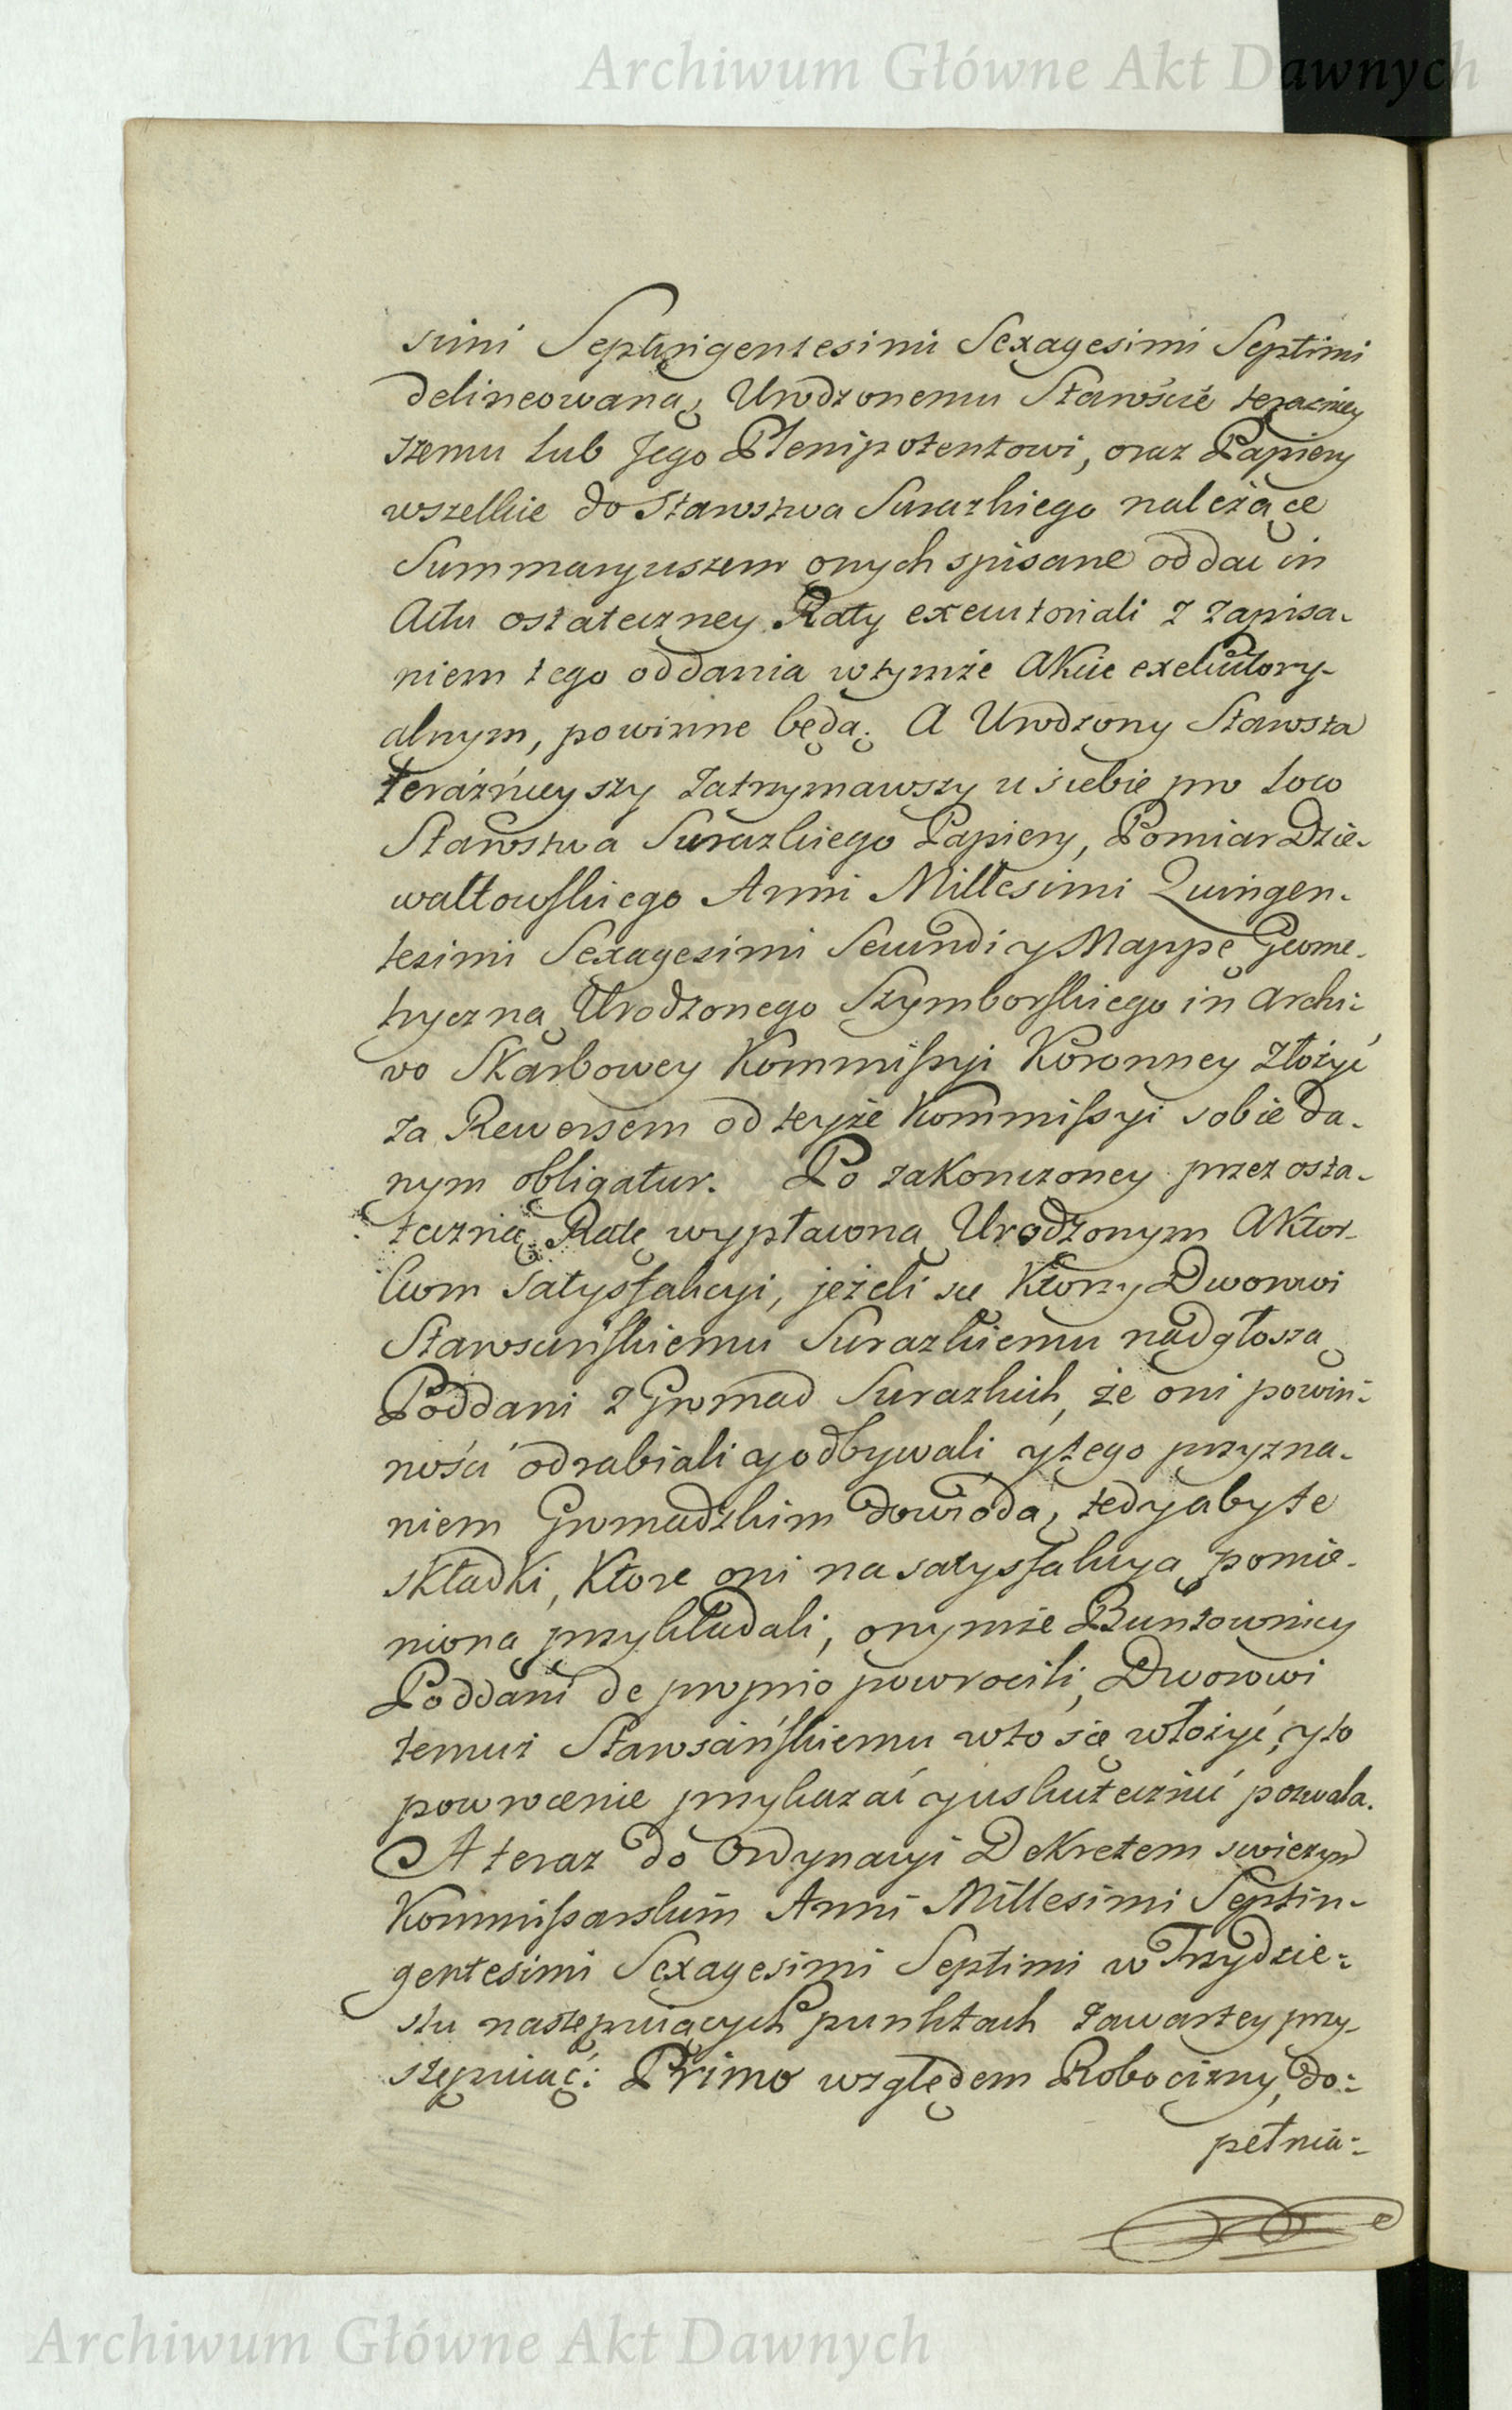 Archiwum Główne Akt Dawnych
simi Septingentesimi Sexagesimi Septimi
delineowaną, Urodzonemu Staroście teraźniey
szemu lub Jego Plenipotentowi, oraz Papiery
wszelkie do Starostwa Surazkiego należące
Summaryuszem onych spisane oddać in
Actu ostateczney Raty executoriali z zapisa-
niem tego oddania w tymże Akcie exekutory-
alnym, powinne będą. A Urodzony Starosta
teraźnieyszy zatrzymawszy u siebie pro loco
Starostwa Surazkiego Papiery, Pomiar Dzie-
wałtowskiego Anni Millesimi Quingen-
tesimi Sexagesimi Secundi y Mappę Geome-
tryczną Urodzonego Szymborskiego in Archi-
vo Skarbowey Kommissyi Koronney złożyć
za Rewersem od teyże Kommissyi sobie da-
nym obligatur. Po zakonczoney przez osta-
teczną Ratę wypłaconą Urodzonym Aktor-
kom satysfakcyi, jeżeli się Ktorzy Dworowi
Starościńskiemu Surazkiemu nadgłoszą
Poddani z Gromad Surazkich, że oni powin-
ności odrabiali y odbywali, y tego przyzna-
niem Gromadzkim dowiodą, tedy aby te
składki, Ktore oni na satysfakcyą pomie-
nioną przykładali, onymże Buntownicy
Poddani de proprio powrocili, Dworowi
temuż Starościńskiemu w to się włożyć, y to
powrocenie przykazać y uskutecznić pozwala.
A teraz do Ordynacyi Dekretem swieżym
Kommissarskim Anni Millesimi Septin-
gentesimi Sexagesimi Septimi w Trzydzie-
stu następuiących punktach zawartey przy-
stępuiąc: Primo względem Robocizny, do-
pełnia-
Archiwum Główne Akt Dawnych